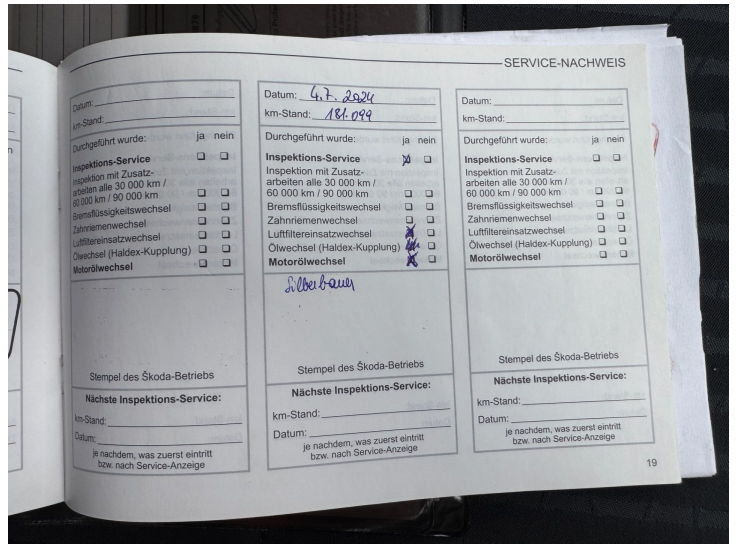 SERVICE-NACHWEIS
Datum:
km-Stand:
Durchgeführt wurde: ja nein
Inspektions-Service
Inspektion mit Zusatz-
arbeiten alle 30 000 km /
60 000 km / 90 000 km
Bremsflüssigkeitswechsel
Zahnriemenwechsel
Luftfiltereinsatzwechsel
Ölwechsel (Haldex-Kupplung)
Motorölwechsel
Stempel des Škoda-Betriebs
Nächste Inspektions-Service:
km-Stand:
Datum:
je nachdem, was zuerst eintritt
bzw. nach Service-Anzeige
Datum: 4.7. 2024
km-Stand: 181.099
Durchgeführt wurde: ja nein
Inspektions-Service
Inspektion mit Zusatz-
arbeiten alle 30 000 km /
60 000 km / 90 000 km
Bremsflüssigkeitswechsel
Zahnriemenwechsel
Luftfiltereinsatzwechsel
Ölwechsel (Haldex-Kupplung)
Motorölwechsel
Silberbauer
Stempel des Škoda-Betriebs
Nächste Inspektions-Service:
km-Stand:
Datum:
je nachdem, was zuerst eintritt
bzw. nach Service-Anzeige
Datum:
km-Stand:
Durchgeführt wurde: ja nein
Inspektions-Service
Inspektion mit Zusatz-
arbeiten alle 30 000 km /
60 000 km / 90 000 km
Bremsflüssigkeitswechsel
Zahnriemenwechsel
Luftfiltereinsatzwechsel
Ölwechsel (Haldex-Kupplung)
Motorölwechsel
Stempel des Škoda-Betriebs
Nächste Inspektions-Service:
km-Stand:
Datum:
je nachdem, was zuerst eintritt
bzw. nach Service-Anzeige
19